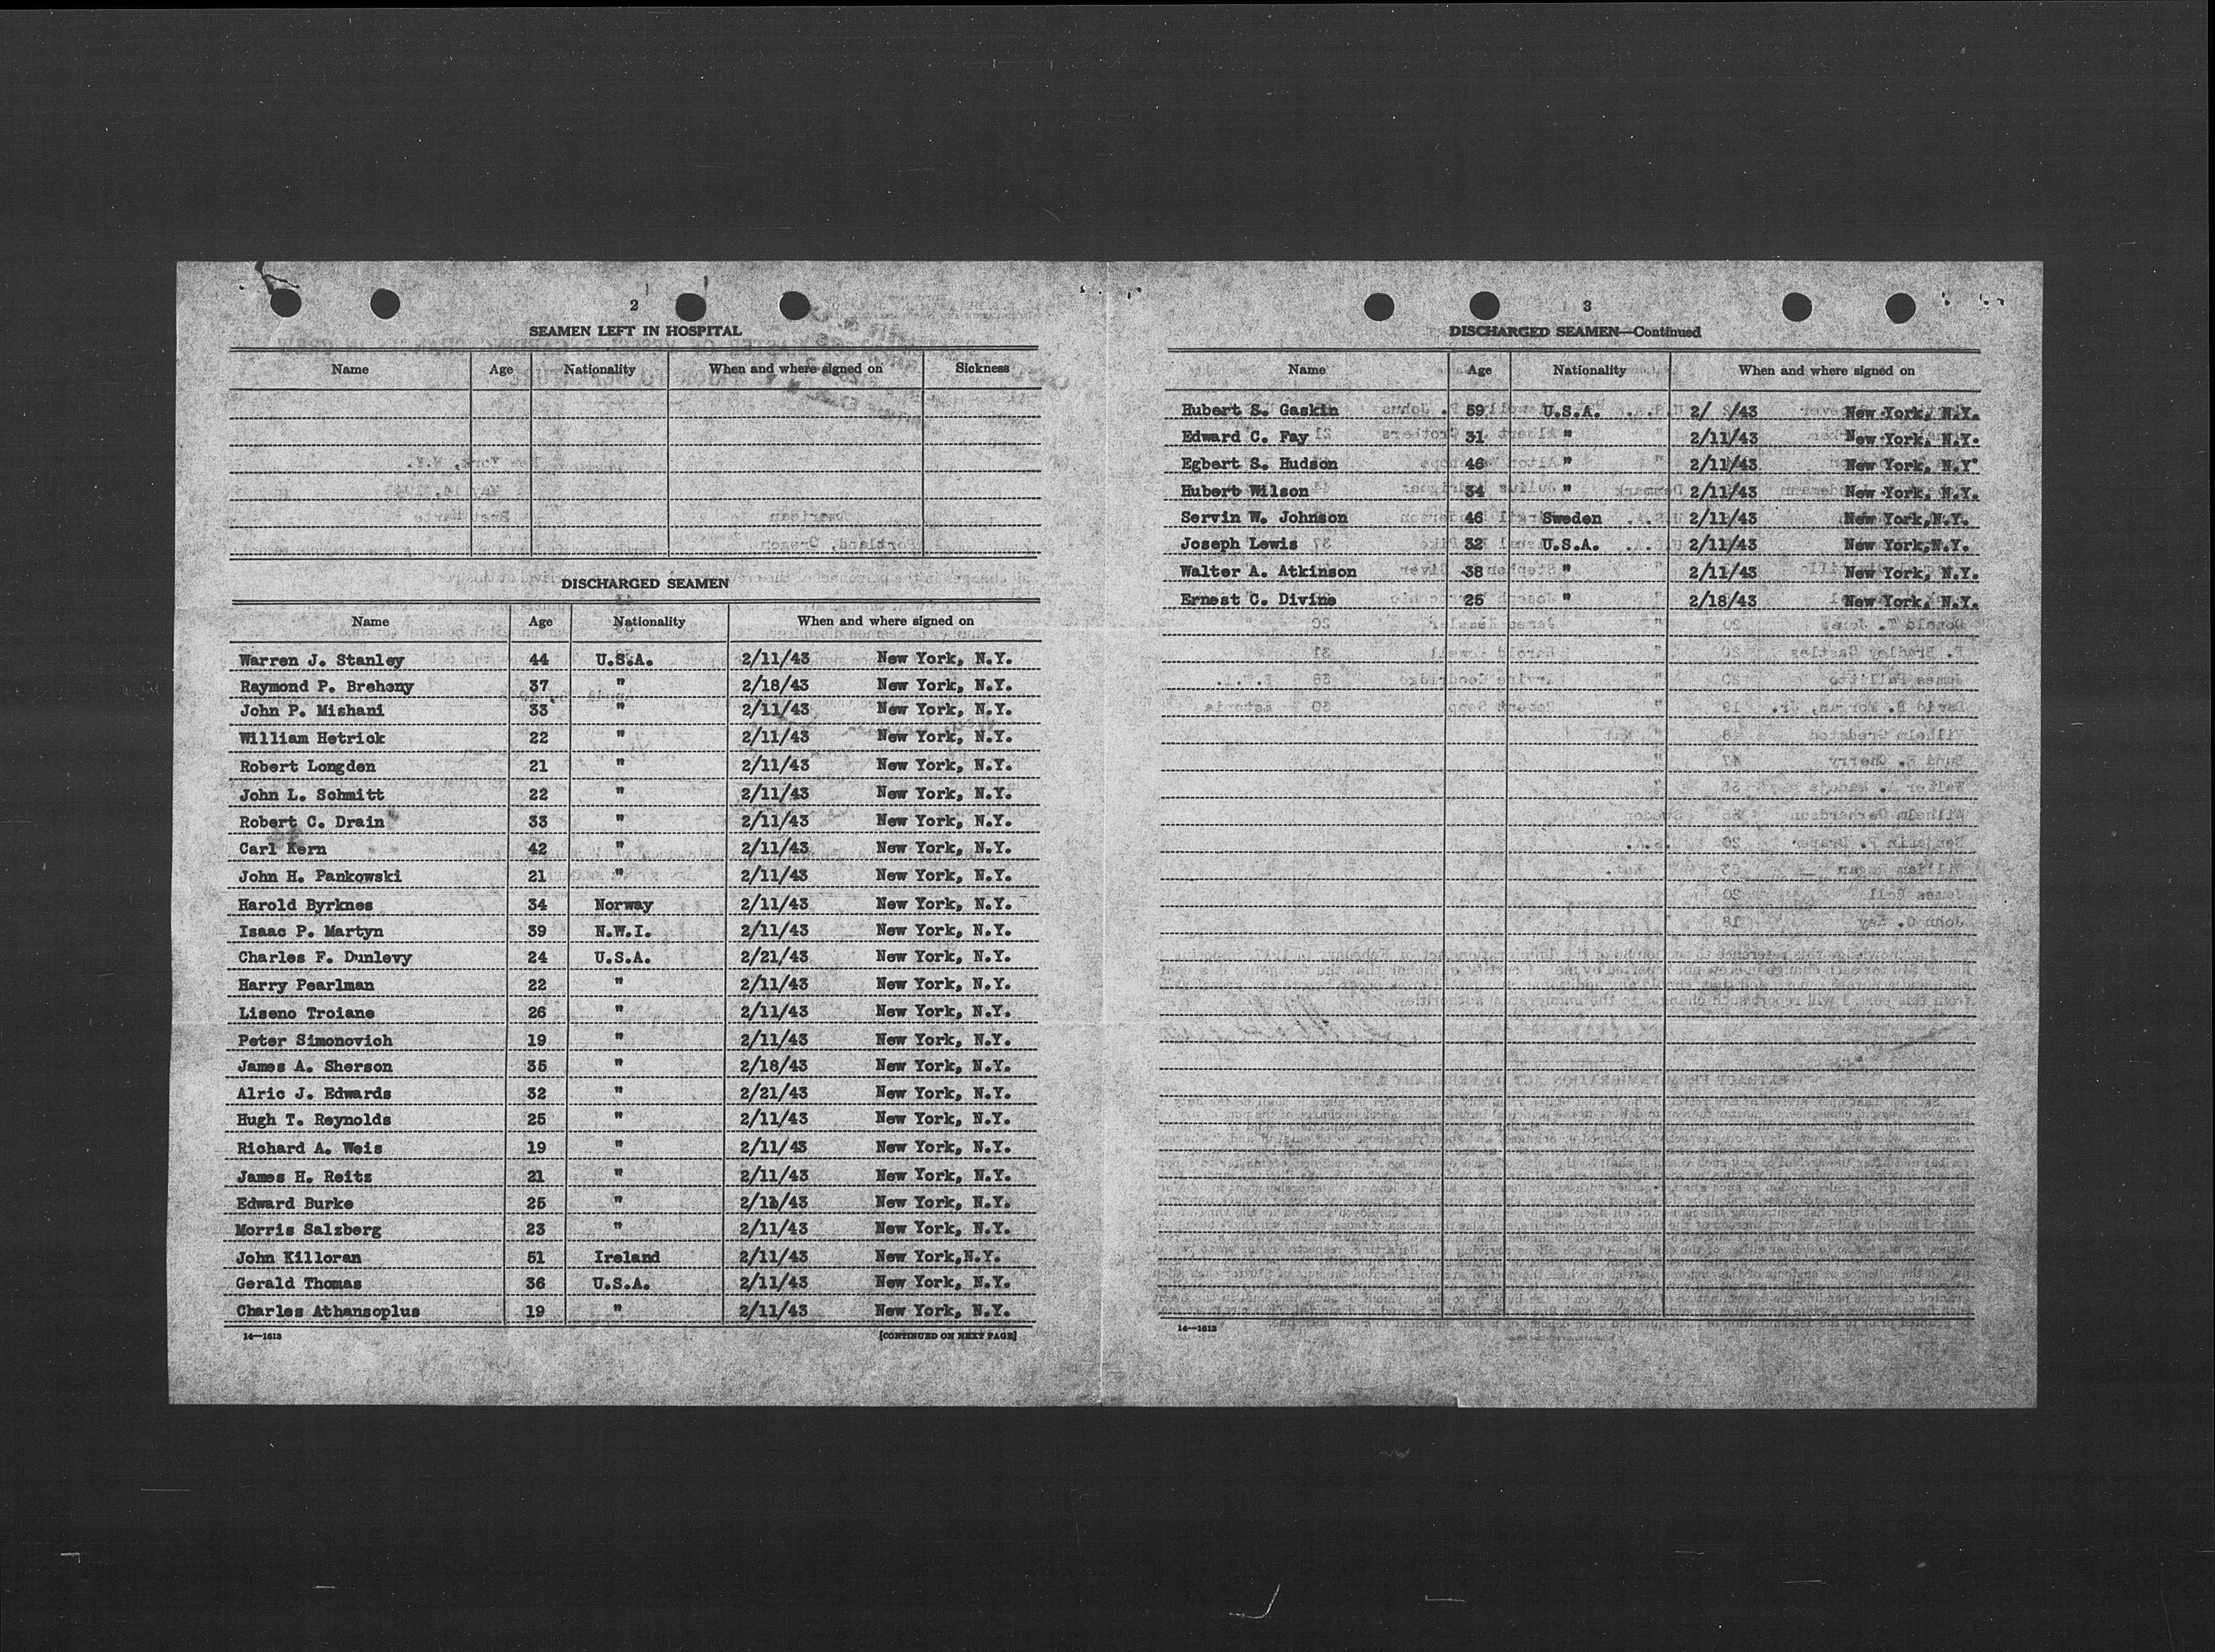 2
SEAMEN LEFT IN HOSPITAL
Name Age Nationality When and where signed on Sickness
DISCHARGED SEAMEN
Name Age Nationality When and where signed on
Warren J. Stanley 44 U.S.A. 2/11/43 New York, N.Y.
Raymond P. Brehony 37 " 2/18/43 New York, N.Y.
John P. Mishani 33 " 2/11/43 New York, N.Y.
William Hetrick 22 " 2/11/43 New York, N.Y.
Robert Longden 21 " 2/11/43 New York, N.Y.
John L. Schmitt 22 " 2/11/43 New York, N.Y.
Robert C. Drain 33 " 2/11/43 New York, N.Y.
Carl Kern 42 " 2/11/43 New York, N.Y.
John H. Pankowski 21 " 2/11/43 New York, N.Y.
Harold Byrknes 34 Norway 2/11/43 New York, N.Y.
Isaac P. Martyn 39 N.W.I. 2/11/43 New York, N.Y.
Charles F. Dunlevy 24 U.S.A. 2/21/43 New York, N.Y.
Harry Pearlman 22 " 2/11/43 New York, N.Y.
Liseno Troiane 26 " 2/11/43 New York, N.Y.
Peter Simonovich 19 " 2/11/43 New York, N.Y.
James A. Sherson 35 " 2/18/43 New York, N.Y.
Alric J. Edwards 32 " 2/21/43 New York, N.Y.
Hugh T. Reynolds 25 " 2/11/43 New York, N.Y.
Richard A. Weis 19 " 2/11/43 New York, N.Y.
James H. Reitz 21 " 2/11/43 New York, N.Y.
Edward Burke 25 " 2/11/43 New York, N.Y.
Morris Salzberg 23 " 2/11/43 New York, N.Y.
John Killoran 51 Ireland 2/11/43 New York,N.Y.
Gerald Thomas 36 U.S.A. 2/11/43 New York, N.Y.
Charles Athansoplus 19 " 2/11/43 New York, N.Y.
14—1613 [CONTINUED ON NEXT PAGE]
3
DISCHARGED SEAMEN—Continued
Name Age Nationality When and where signed on
Hubert S. Gaskin 59 U.S.A. 2/ /43 New York, N.Y.
Edward C. Fay 31 " 2/11/43 New York, N.Y.
Egbert S. Hudson 46 " 2/11/43 New York, N.Y.
Hubert Wilson 34 " 2/11/43 New York, N.Y.
Servin W. Johnson 46 Sweden 2/11/43 New York,N.Y.
Joseph Lewis 32 U.S.A. 2/11/43 New York,N.Y.
Walter A. Atkinson 38 " 2/11/43 New York, N.Y.
Ernest C. Divine 25 " 2/18/43 New York, N.Y.
14—1613